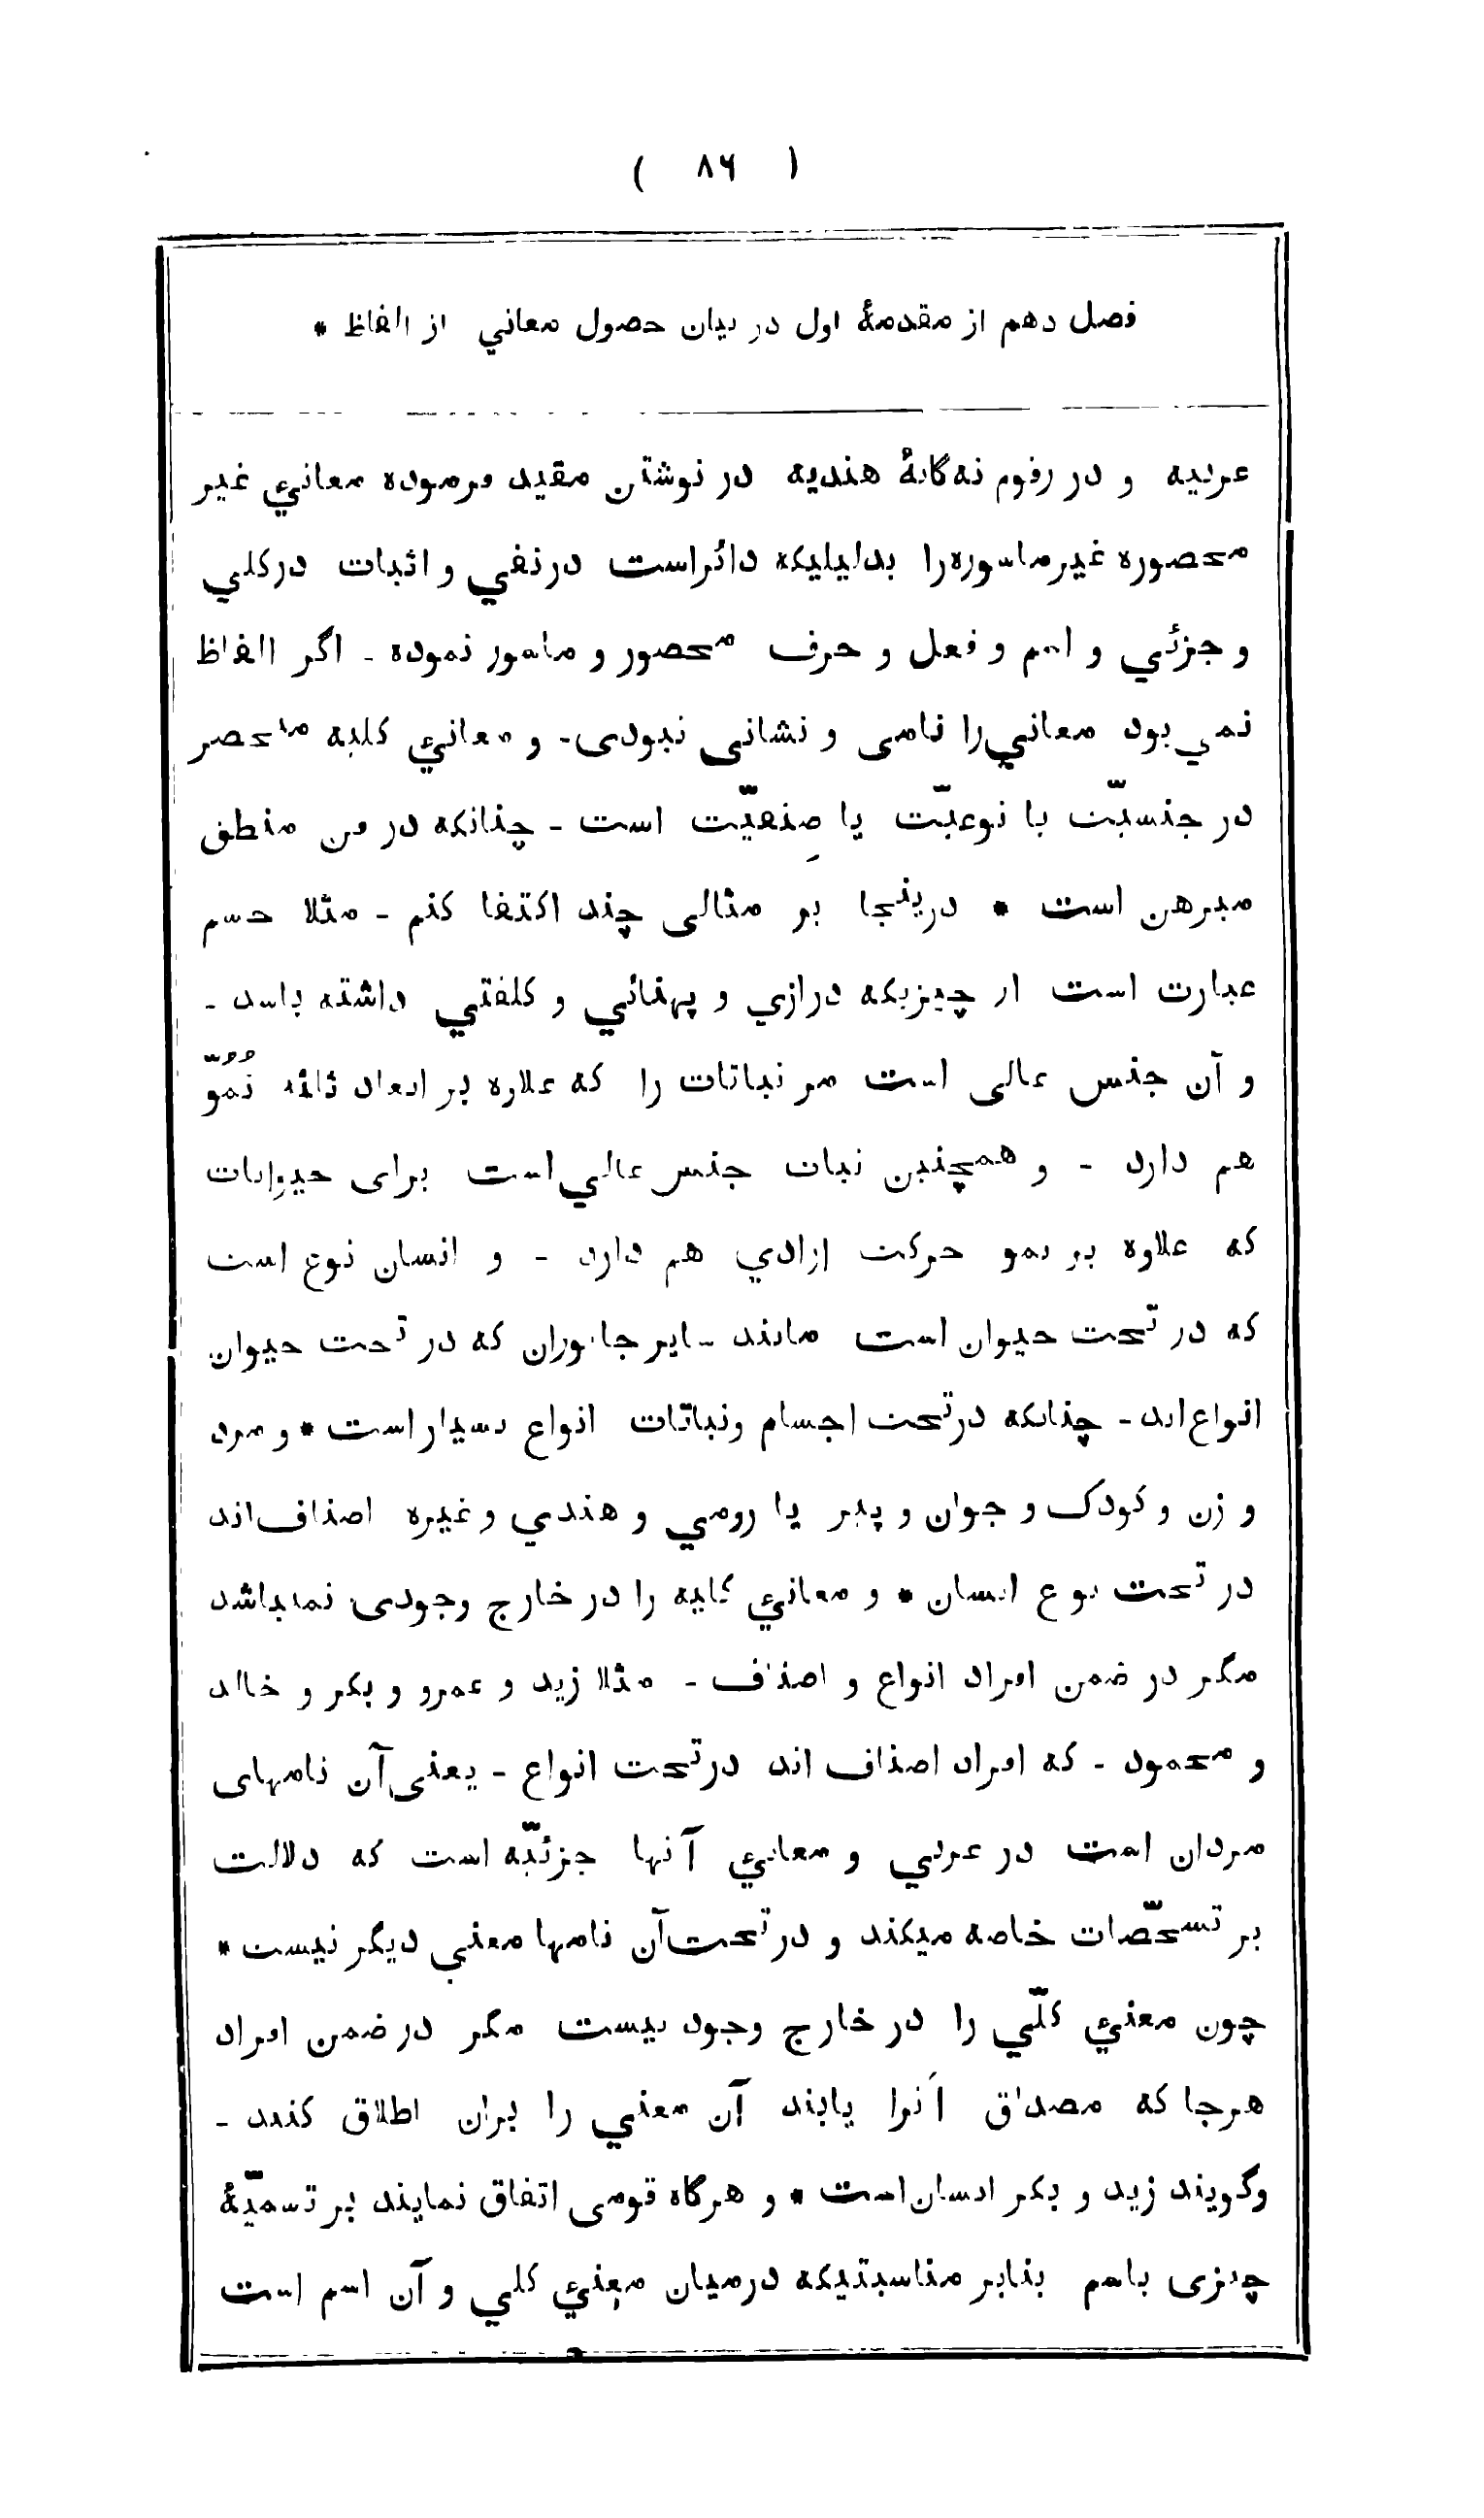 ( ۸۶ )
فصل دهم از مقدمهٔ اول در بیان حصول معاني از الفاظ *
عربیه و در رقوم نه گانهٔ هندیه در نوشتن مقید فرموده معانیِ غیر
محصوره غیر ماسوره را بدلیلیکه دائر است در نفي و اثبات در کلي
و جزئي و اسم و فعل و حرف محصور و مامور نموده - اگر الفاظ
نمي بود معاني را نامی و نشانی نبودی - و معانیِ کلیه منحصر
در جنسیّت یا نوعیّت یا صِنفیّت است - چنانکه در فن منطق
مبرهن است * درینجا بر مثالی چند اکتفا کنم - مثلا جسم
عبارت است از چیزیکه درازي و پهنائي و کلفتي داشته باشد -
و آن جنس عالی است مر نباتات را که علاوه بر ابعاد ثلثه نُمُوّ
هم دارد - و همچنین نبات جنس عالي است برای حیوانات
که علاوه بر نمو حرکت ارادي هم دارد - و انسان نوع است
که در تحت حیوان است مانند سایر جانوران که در تحت حیوان
انواع اند - چنانکه در تحت اجسام ونباتات انواع بسیار است * و مرد
و زن و کودک و جوان و پیر یا رومي و هندي و غیره اصناف اند
در تحت نوع انسان * و معانیِ کلیه را در خارج وجودی نمیباشد
مگر در ضمن افراد انواع و اصناف - مثلا زید و عمرو و بکر و خالد
و محمود - که افراد اصناف اند در تحت انواع - یعنی آن نامهای
مردان است در عربي و معانیِ آنها جزئیّه است که دلالت
بر تشخّصات خاصه میکند و در تحت آن نامها معنی دیگر نیست *
چون معنیِ کلّي را در خارج وجود نیست مگر در ضمن افراد
هرجا که مصداق آنرا یابند آن معني را بران اطلاق کنند -
وگویند زید و بکر انسان است * و هرگاه قومی اتفاق نمایند بر تسمیّهٔ
چیزی باسم بنابر مناسبتیکه درمیان معنیِ کلي و آن اسم است